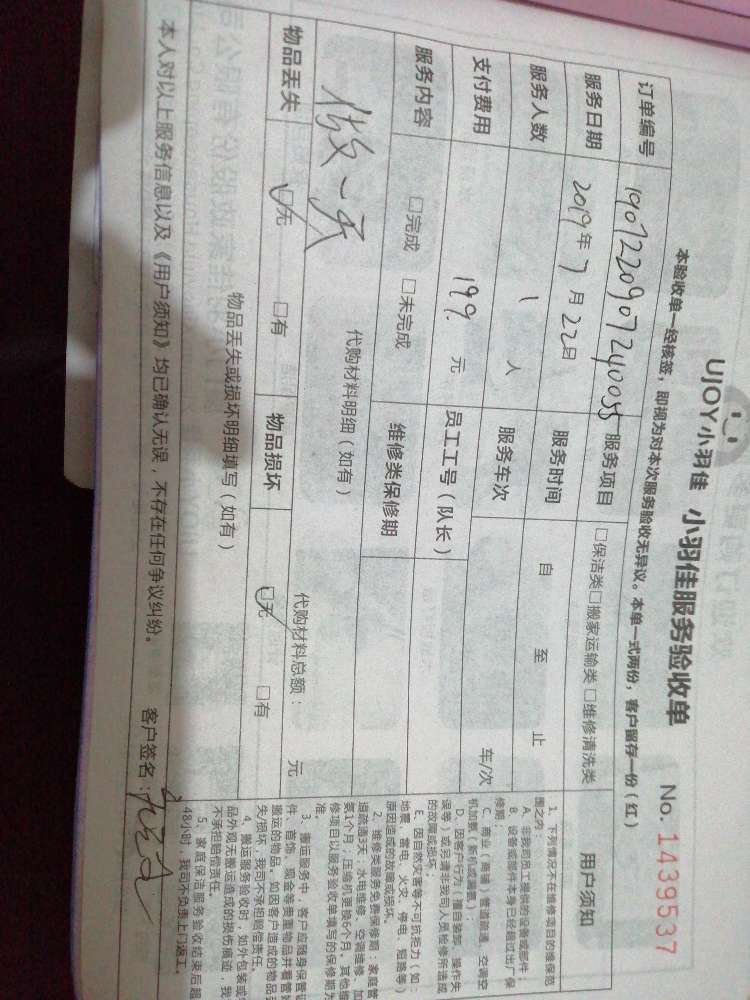 UJOY小羽佳 小羽佳服务验收单 No. 1439537
本验收单一经核签，即视为对本次服务验收无异议。本单一式两份，客户留存一份（红）
订单编号 190722090724005 服务项目 □保洁类□搬家运输类□维修清洗类
服务日期 2019年7月22日 服务时间 自 至 止
服务人数 1 人 服务车次 车/次
支付费用 199. 元 员工工号（队长）
服务内容 □完成 □未完成 维修类保修期
做一天
代购材料明细（如有） 代购材料总额： 元
物品丢失 □无 □有 物品损坏 □无 □有
物品丢失或损坏明细填写（如有）
本人对以上服务信息以及《用户须知》均已确认无误，不存在任何争议纠纷。 客户签名：
用户须知
1、下列情况不在维修项目的维保范
围之内：
A、非我司员工提供的设备或部件；
B、设备或部件本身已经超过出厂保
修期；
C、商业（商铺）管道疏通、空调空
机加氨（新机或漏氨）；
D、因客户行为（擅自装卸、操作失
误等）或另请非我司人员检修所造成
的故障或损坏；
E、因自然灾害等不可抗拒力（如：
地震、雷电、火灾、停电、短路等）
原因造成的故障或损坏。
2、维修类服务免费保修期：家庭管
道疏通3天；水电维修、空调维修、加
氨1个月；压缩机更换6个月。其他维
修项目以服务验收单填写的保修期为
准。
3、搬运服务中，客户应随身保管证
件、首饰、现金等贵重物品并看管好
搬运的物品。如因客户造成的物品丢
失/损坏，我司不承担赔偿责任。
4、搬运服务验收时，如外包装或
品外观无搬运造成的损伤痕迹，我
不承担赔偿责任。
5、家庭保洁服务验收结束后超
48小时，我司不负责上门返工。